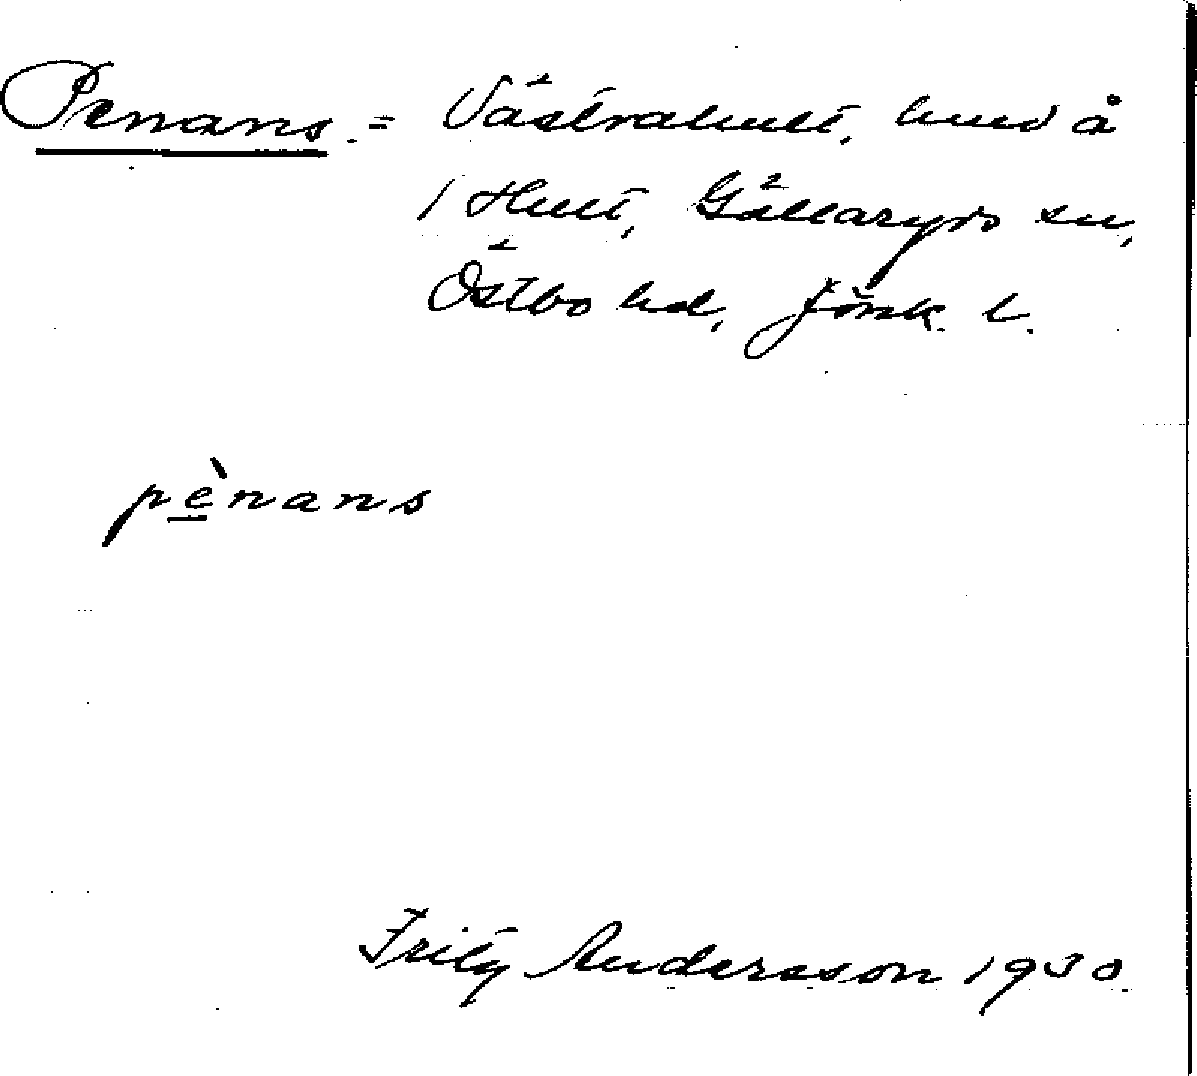 Penans. = Västrahult, hmd å
1 Hult, Gällaryds sn,
Östbo hd, Jönk. l.
pènans
Fritz Andersson 1930